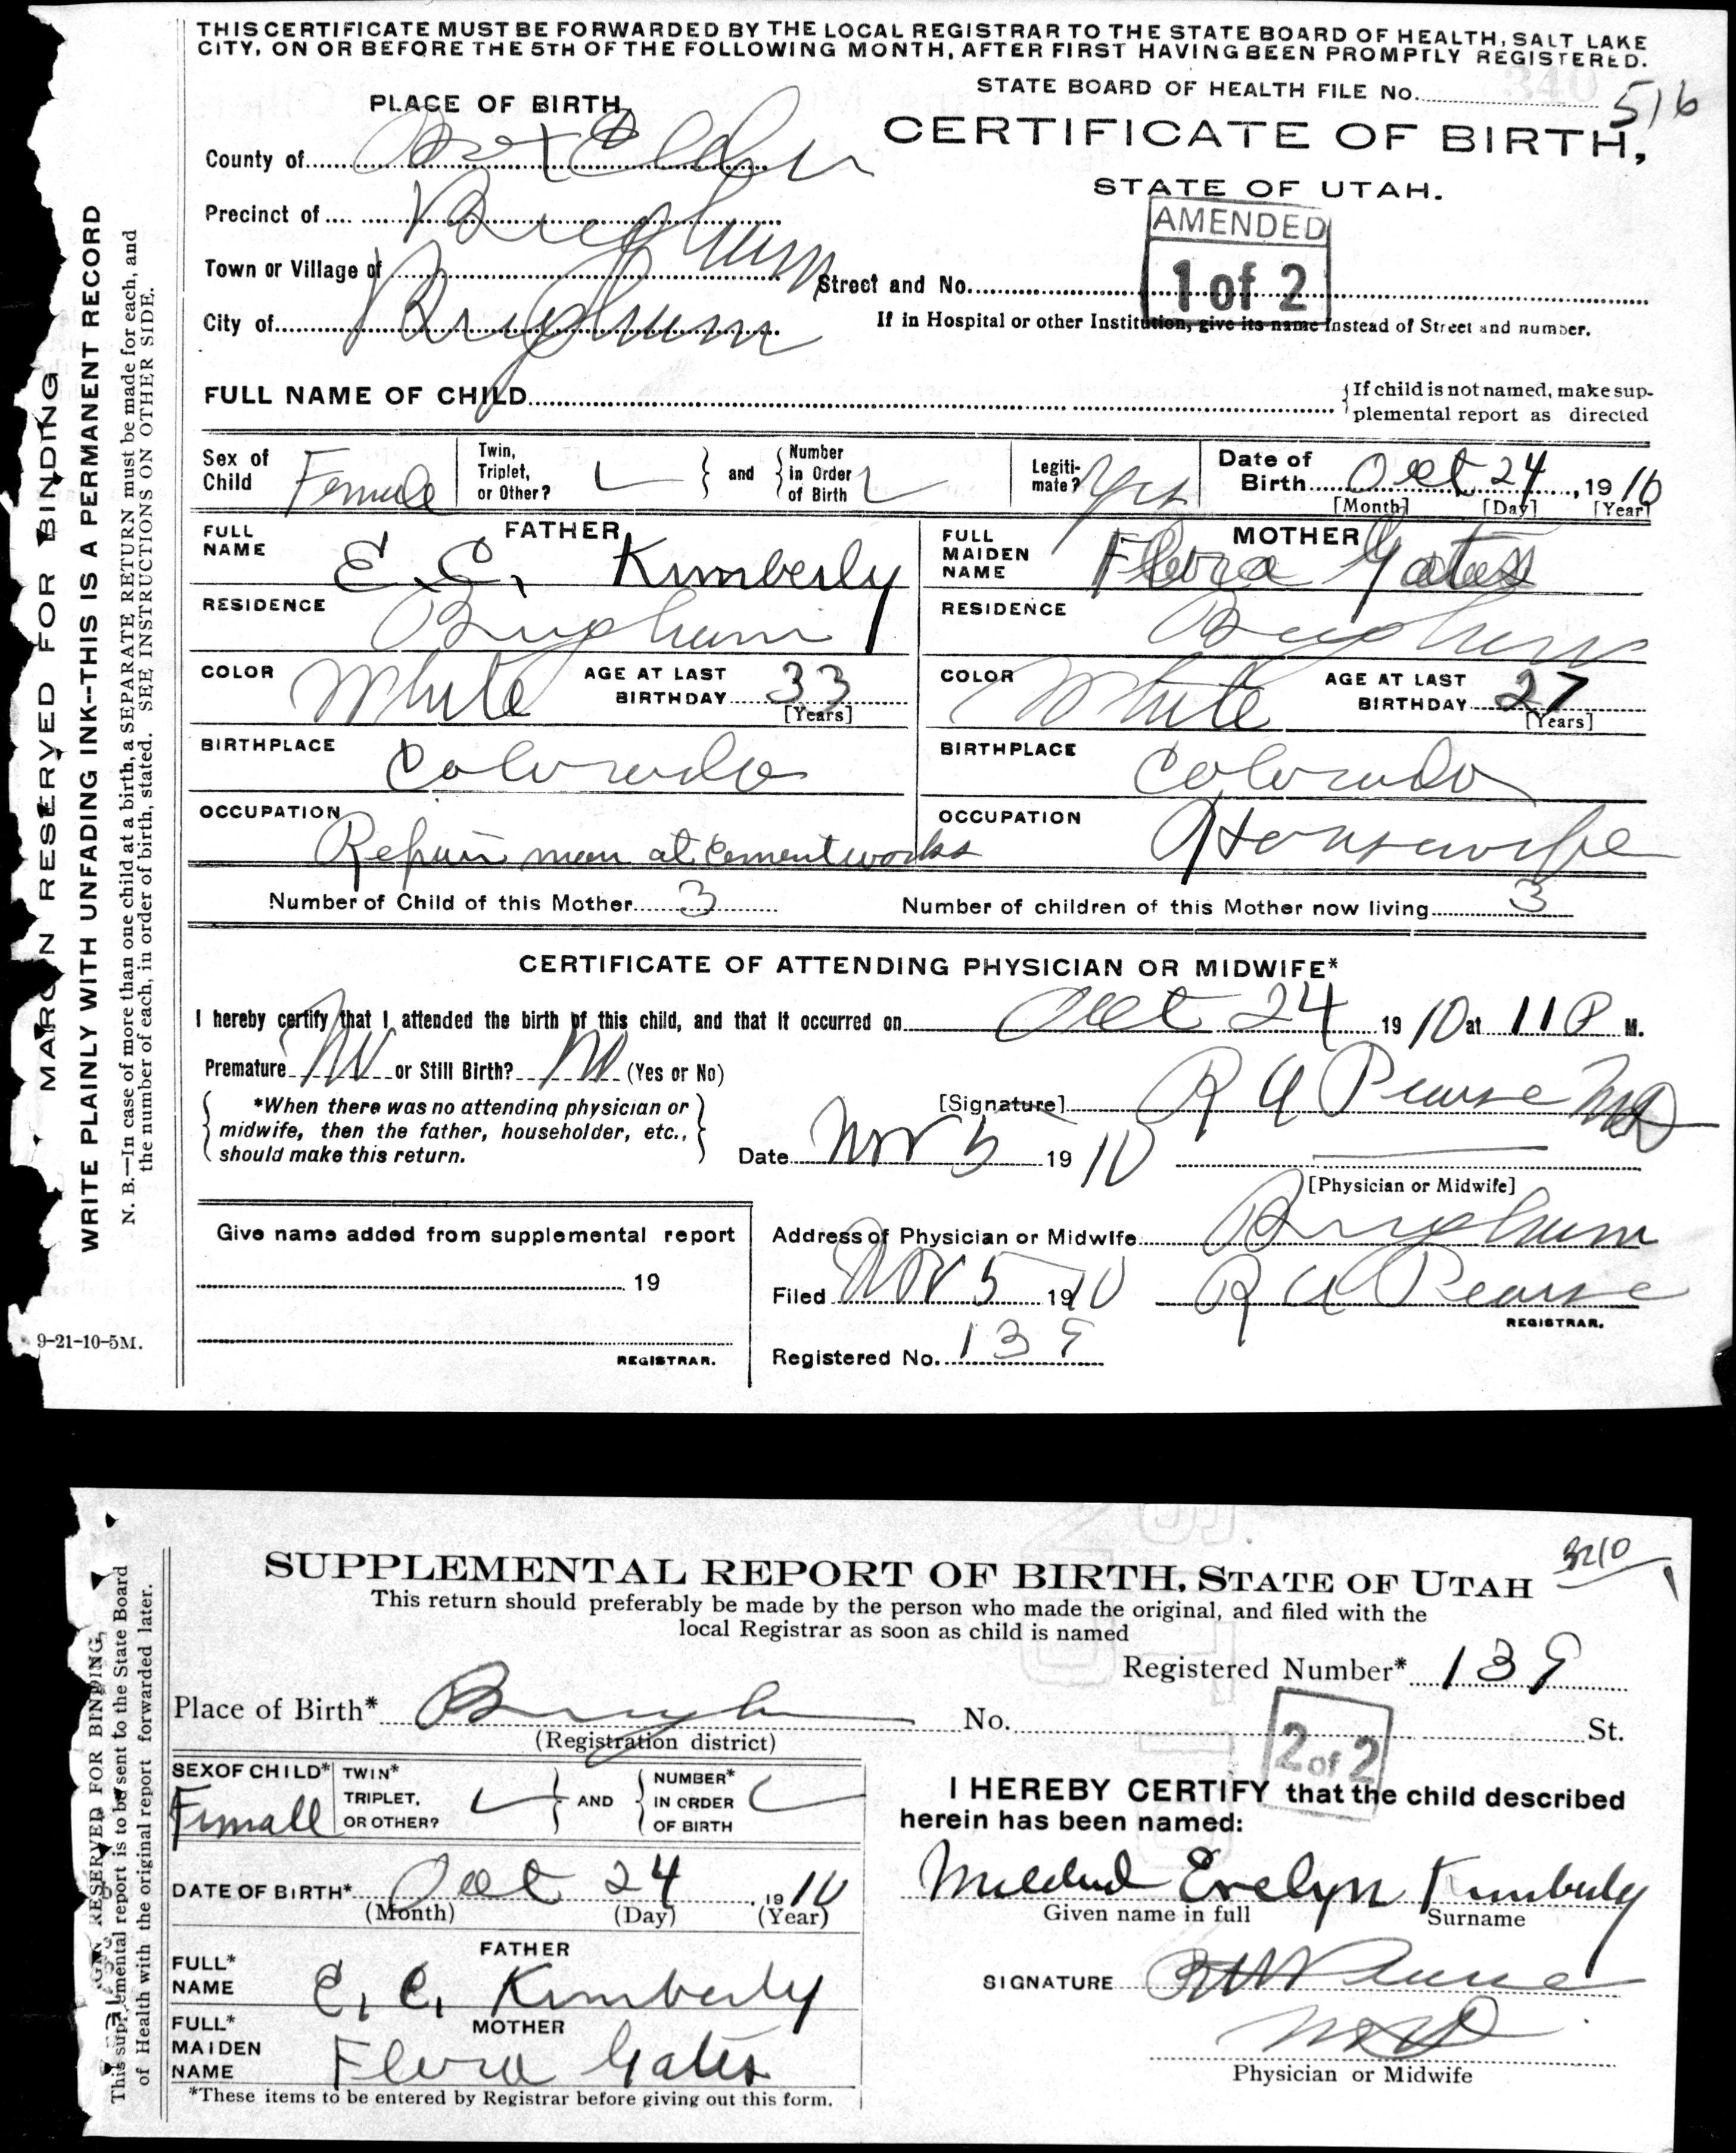 THIS CERTIFICATE MUST BE FORWARDED BY THE LOCAL REGISTRAR TO THE STATE BOARD OF HEALTH, SALT LAKE
CITY, ON OR BEFORE THE 5TH OF THE FOLLOWING MONTH, AFTER FIRST HAVING BEEN PROMPTLY REGISTERED.
STATE BOARD OF HEALTH FILE No. 516
340
PLACE OF BIRTH
CERTIFICATE OF BIRTH,
County of Box Elder
STATE OF UTAH.
Precinct of Brigham
AMENDED
1 of 2
Town or Village of
Street and No.
City of Brigham
If in Hospital or other Institution, give its name instead of Street and number.
FULL NAME OF CHILD
{If child is not named, make sup-
plemental report as directed
Sex of Child Female
Twin, Triplet, or Other?
and
Number in Order of Birth
Legiti-mate? Yes
Date of Birth Oct 24, 1910
[Month] [Day] [Year]
FATHER
FULL NAME E. C. Kimberly
MOTHER
FULL MAIDEN NAME Flora Gates
RESIDENCE Brigham
RESIDENCE Brigham
COLOR White AGE AT LAST BIRTHDAY 33 [Years]
COLOR White AGE AT LAST BIRTHDAY 27 [Years]
BIRTHPLACE Colorado
BIRTHPLACE Colorado
OCCUPATION Repair man at cement works
OCCUPATION Housewife
Number of Child of this Mother 3
Number of children of this Mother now living 3
CERTIFICATE OF ATTENDING PHYSICIAN OR MIDWIFE*
I hereby certify that I attended the birth of this child, and that it occurred on Oct 24 1910 at 11 P M.
Premature No or Still Birth? No (Yes or No)
*When there was no attending physician or
midwife, then the father, householder, etc.,
should make this return.
[Signature] R A Pearse MD
Date Nov 5 1910
[Physician or Midwife]
Give name added from supplemental report
19
REGISTRAR.
Address of Physician or Midwife Brigham
Filed Nov 5 1910 R A Pearse
REGISTRAR.
Registered No. 139
MARGIN RESERVED FOR BINDING
WRITE PLAINLY WITH UNFADING INK--THIS IS A PERMANENT RECORD
N. B.—In case of more than one child at a birth, a SEPARATE RETURN must be made for each, and
the number of each, in order of birth, stated. SEE INSTRUCTIONS ON OTHER SIDE.
9-21-10-5M.
3210
SUPPLEMENTAL REPORT OF BIRTH, STATE OF UTAH
This return should preferably be made by the person who made the original, and filed with the
local Registrar as soon as child is named
Registered Number* 139
Place of Birth* Brigham No. St.
(Registration district)
2 of 2
SEX OF CHILD* Female
TWIN* TRIPLET, OR OTHER?
AND
NUMBER* IN ORDER OF BIRTH
I HEREBY CERTIFY that the child described
herein has been named:
DATE OF BIRTH* Oct 24, 1910
(Month) (Day) (Year)
Mildred Evelyn Kimberly
Given name in full Surname
FATHER
FULL* NAME E. C. Kimberly
MOTHER
FULL* MAIDEN NAME Flora Gates
SIGNATURE R A Pearse
MD
Physician or Midwife
*These items to be entered by Registrar before giving out this form.
RESERVED FOR BINDING,
This supplemental report is to be sent to the State Board
of Health with the original report forwarded later.